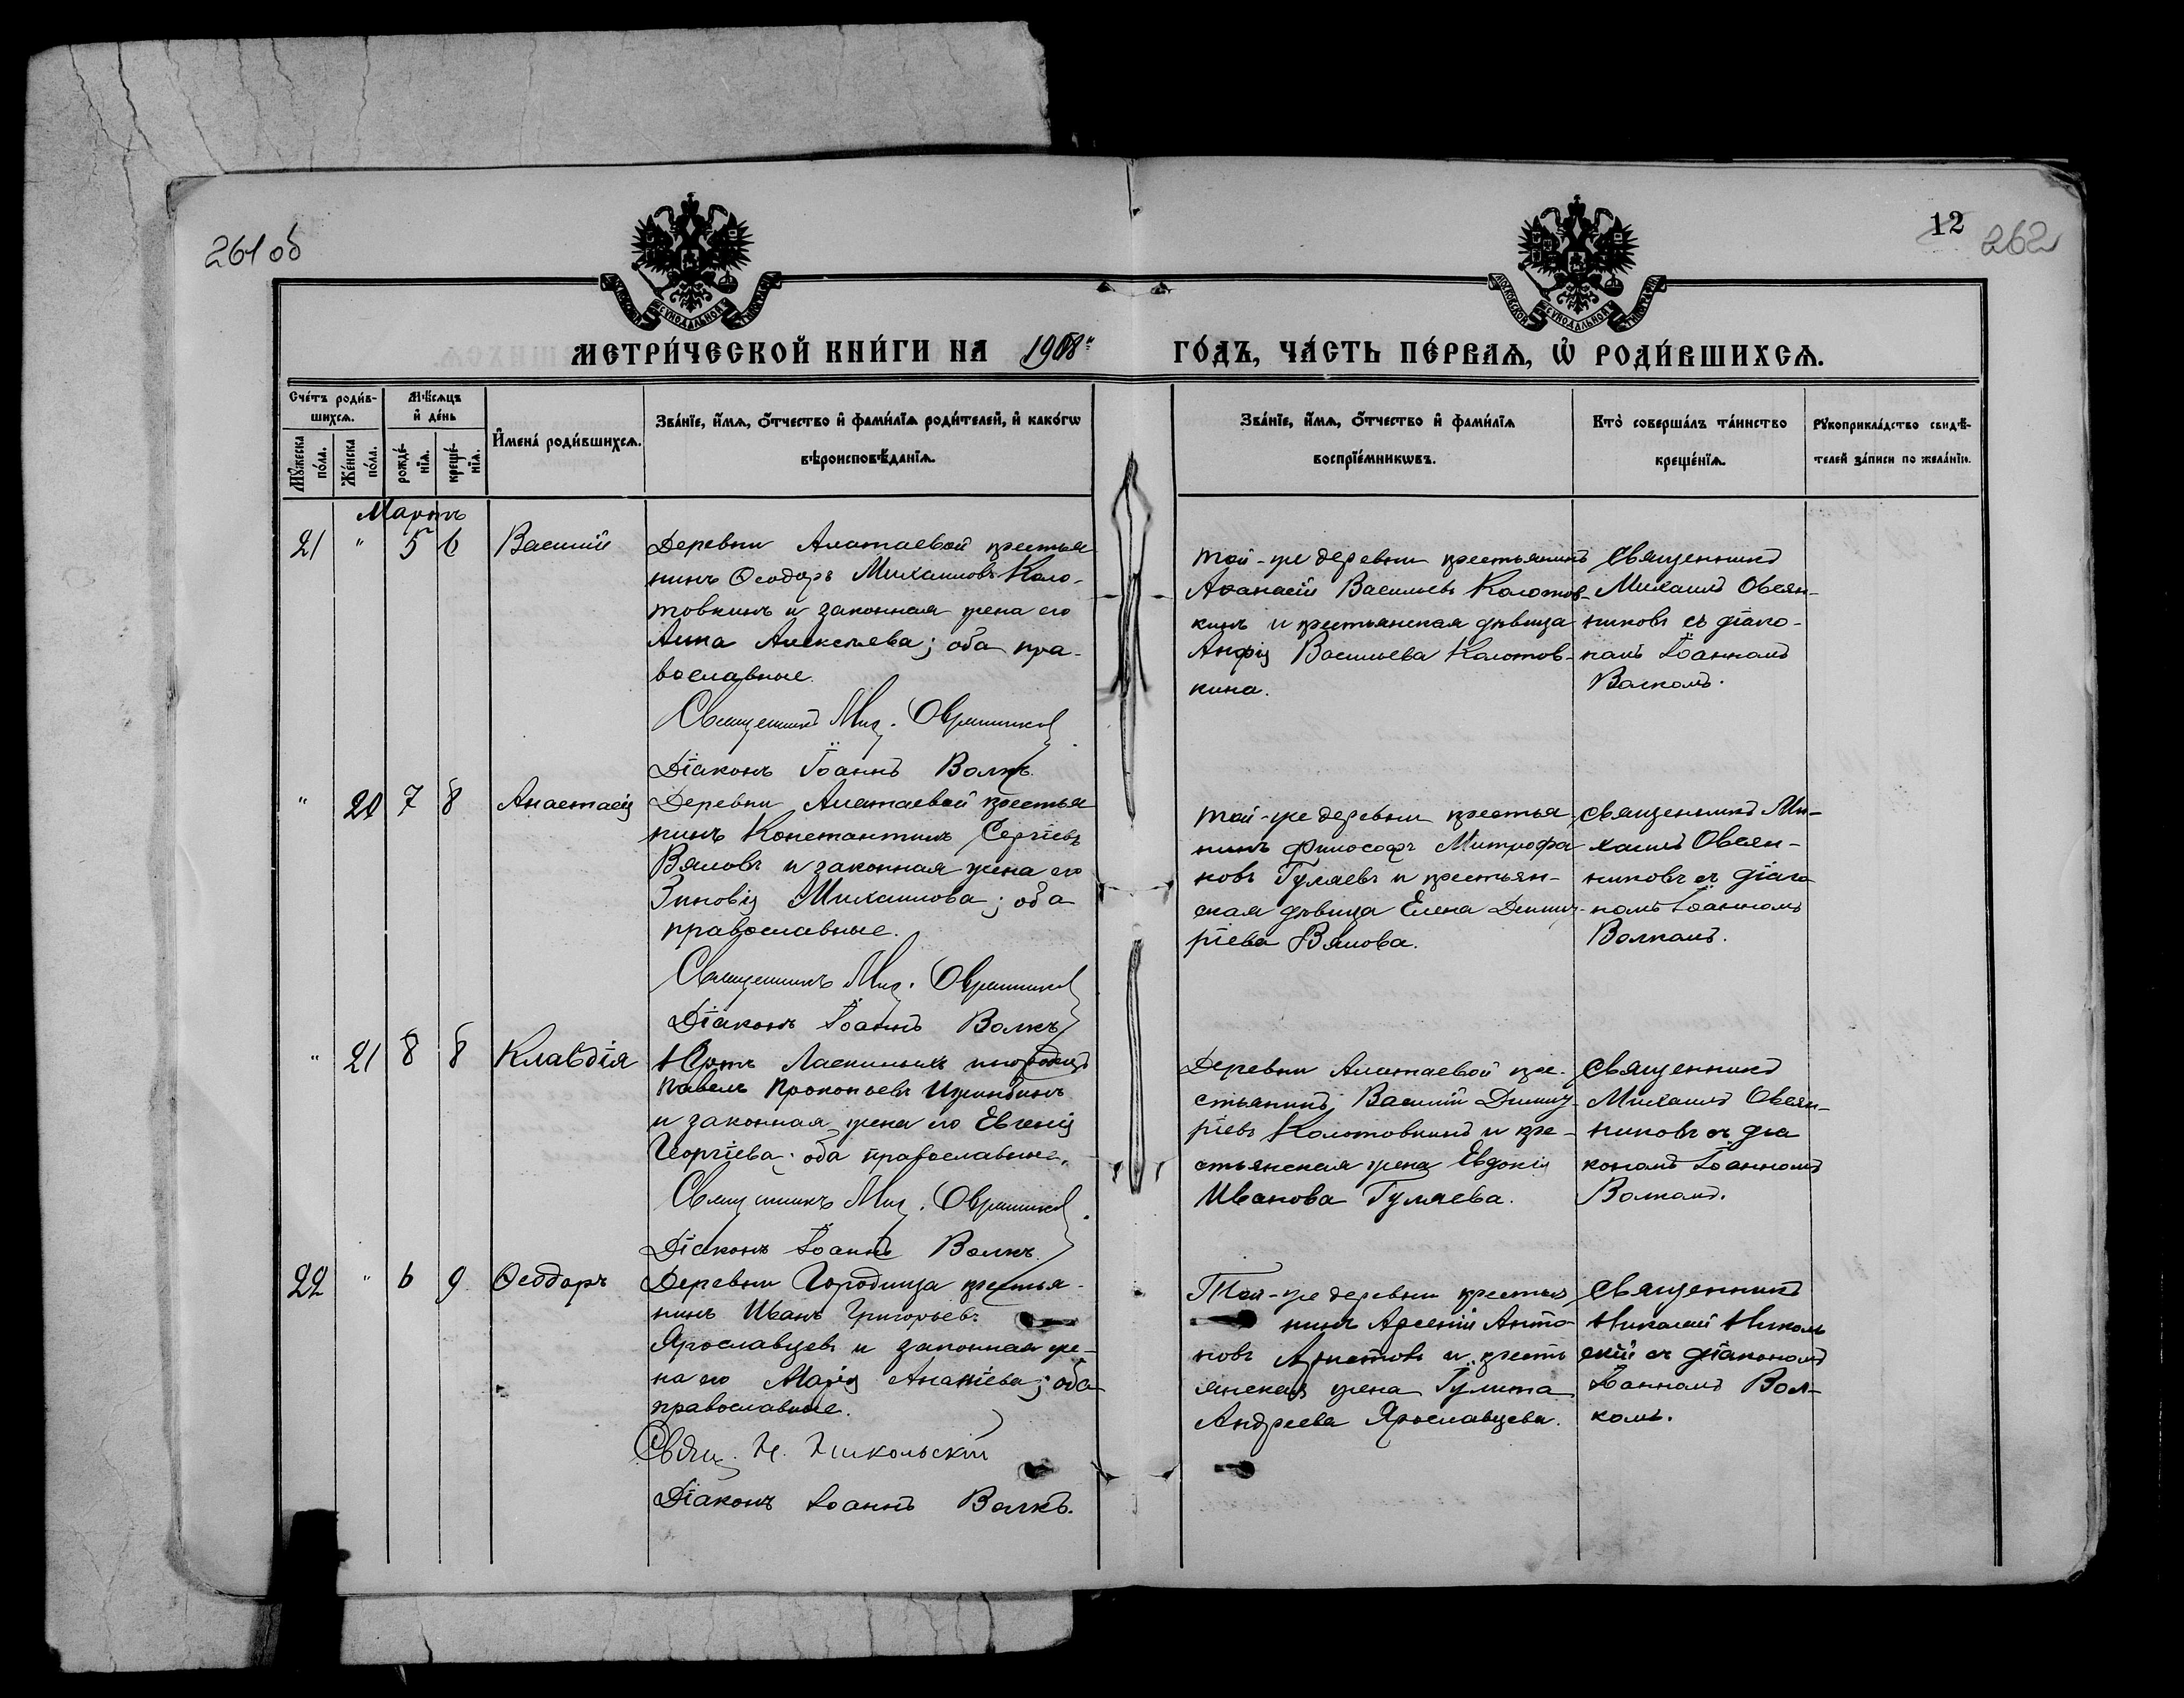 261 об
12
262
МОСКОВСКОЙ СѴНОДАЛЬНОЙ ТИПОГРАФІИ
МОСКОВСКОЙ СѴНОДАЛЬНОЙ ТИПОГРАФІИ
МЕТРИ́ЧЕСКОЙ КНИ́ГИ НА 1908й
ГО́ДЪ, ЧА́СТЬ ПЕ́РВАѦ, Ѡ҆ РОДИ́ВШИХСѦ.
Сче́тъ роди́в-
шихсѧ.
Мѣ́сѧцъ
и҆ де́нь
Мꙋ́жеска
по́ла.
Же́нска
по́ла.
рожде́-
нїѧ.
креще́-
нїѧ.
И҆мена̀ роди́вшихсѧ.
Зва́нїе, и҆́мѧ, ѻ҆́тчество и҆ фами́лїѧ роди́телей, и҆ како́гѡ
вѣроисповѣ́данїѧ.
Зва́нїе, и҆́мѧ, ѻ҆́тчество и҆ фами́лїѧ
воспрїе́мникѡвъ.
Кто̀ соверша́лъ та́инство
креще́нїѧ.
Рꙋкоприкла́дство свидѣ́-
телей за́писи по жела́нїю.
Мартъ
21 " 5 6 Василій
Деревни Алатаевой крестья
нинъ Ѳеодоръ Михаиловъ Коло-
товкинъ и законная жена его
Анна Алексѣева; оба пра-
вославные.
Священникъ Мих. Овсянниковъ
Діаконъ Іоаннъ Волкъ.
той-же деревни крестьянинъ
Аѳанасій Васильевъ Колотов-
кинъ и крестьянская дѣвица
Анфія Васильева Колотов-
кина.
Священникъ
Михаилъ Овсян-
никовъ съ діако-
номъ Іоанномъ
Волкомъ.
" 20 7 8 Анастасія
Деревни Алатаевой крестья
нинъ Константинъ Сергіевъ
Вяловъ и законная жена его
Зиновія Михаилова; оба
православные.
Священникъ Мих. Овсянниковъ
Діаконъ Іоаннъ Волкъ
той-же деревни крестья
нинъ Философъ Митрофа
новъ Гуляевъ и крестьян-
ская дѣвица Елена Димит-
ріева Вялова.
священникъ Ми-
хаилъ Овсян-
никовъ съ діако
номъ Іоанномъ
Волкомъ.
" 21 8 8 Клавдія
Юртъ Ласкиныхъ инородецъ
Павелъ Прокопьевъ Ижинбинъ
и законная жена его Евгенія
Георгіева; оба православные.
Священникъ Мих. Овсянниковъ
Діаконъ Іоаннъ Волкъ.
Деревни Алатаевой кре-
стьянинъ Василій Димит-
ріевъ Колотовкинъ и кре-
стьянская жена Евдокія
Иванова Гуляева.
священникъ
Михаилъ Овсян-
никовъ съ діа
кономъ Іоанномъ
Волкомъ.
22 " 6 9 Ѳеодоръ
Деревни Городища крестья-
нинъ Иванъ Григорьевъ
Ярославцевъ и законная же-
на его Марія Ананіева; оба
православные.
Свящ. Н. Никольскій
Діаконъ Іоаннъ Волкъ.
Той-же деревни крестья
нинъ Арсеній Анто
новъ и кресть
янская жена Іулита
Андреева Ярославцева.
священникъ
Николай Николь
скій съ діакономъ
Іоанномъ Вол-
комъ.